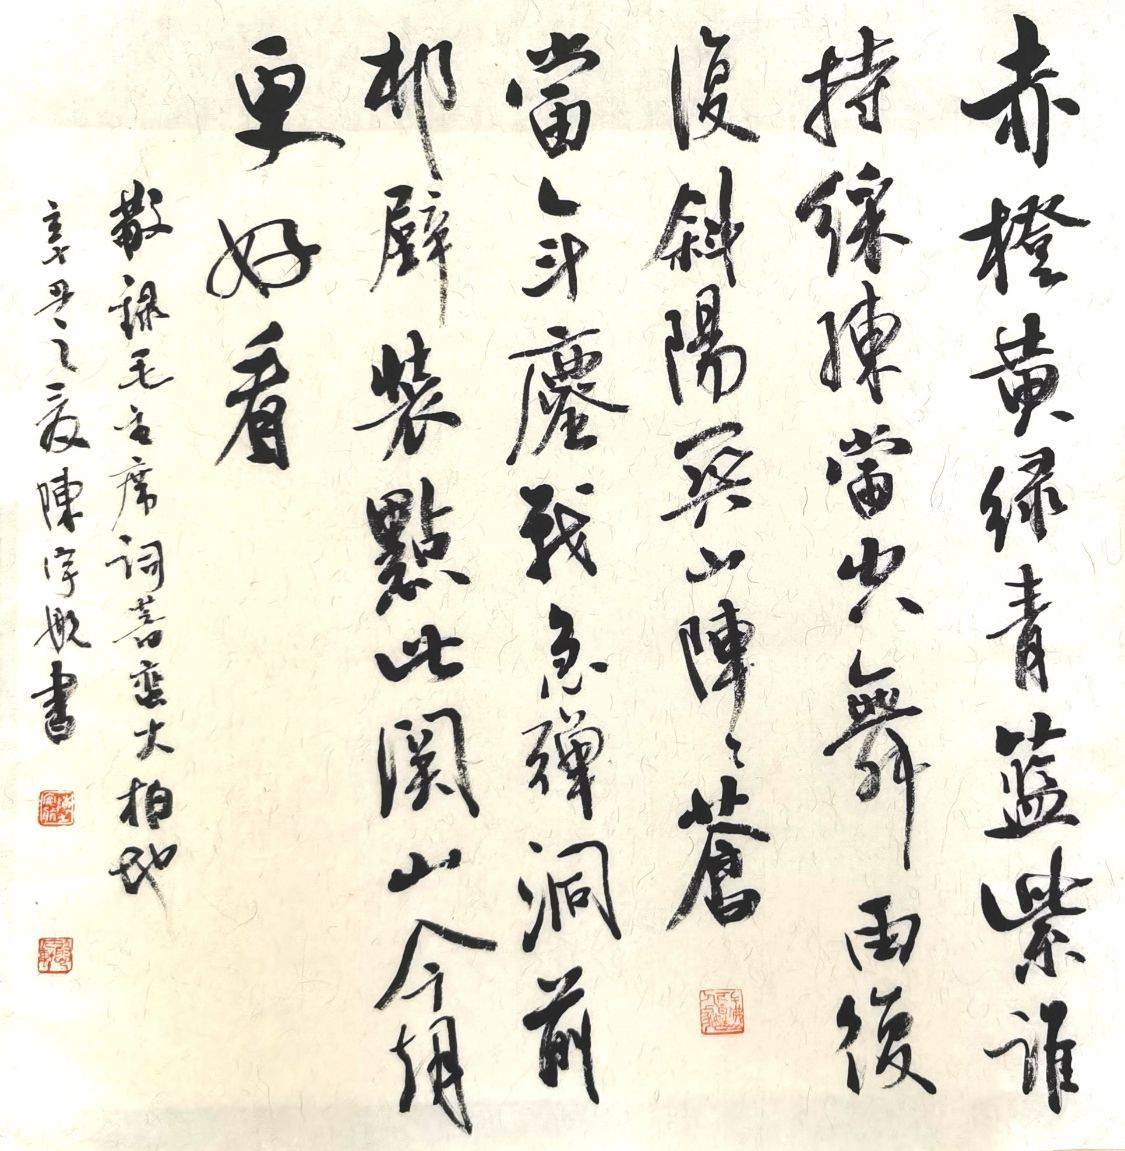 赤橙黄緑青藍紫誰
持綵練當空舞雨後
復斜陽関山陣々蒼
當年鏖戰急彈洞前
村壁裝點此関山今朝
更好看
敬録毛主席詞菩蛮大柏地
辛丑之夏陳宇航書